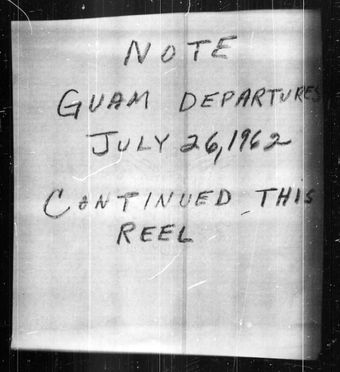 NOTE
GUAM DEPARTURES
JULY 26, 1962
CONTINUED THIS
REEL